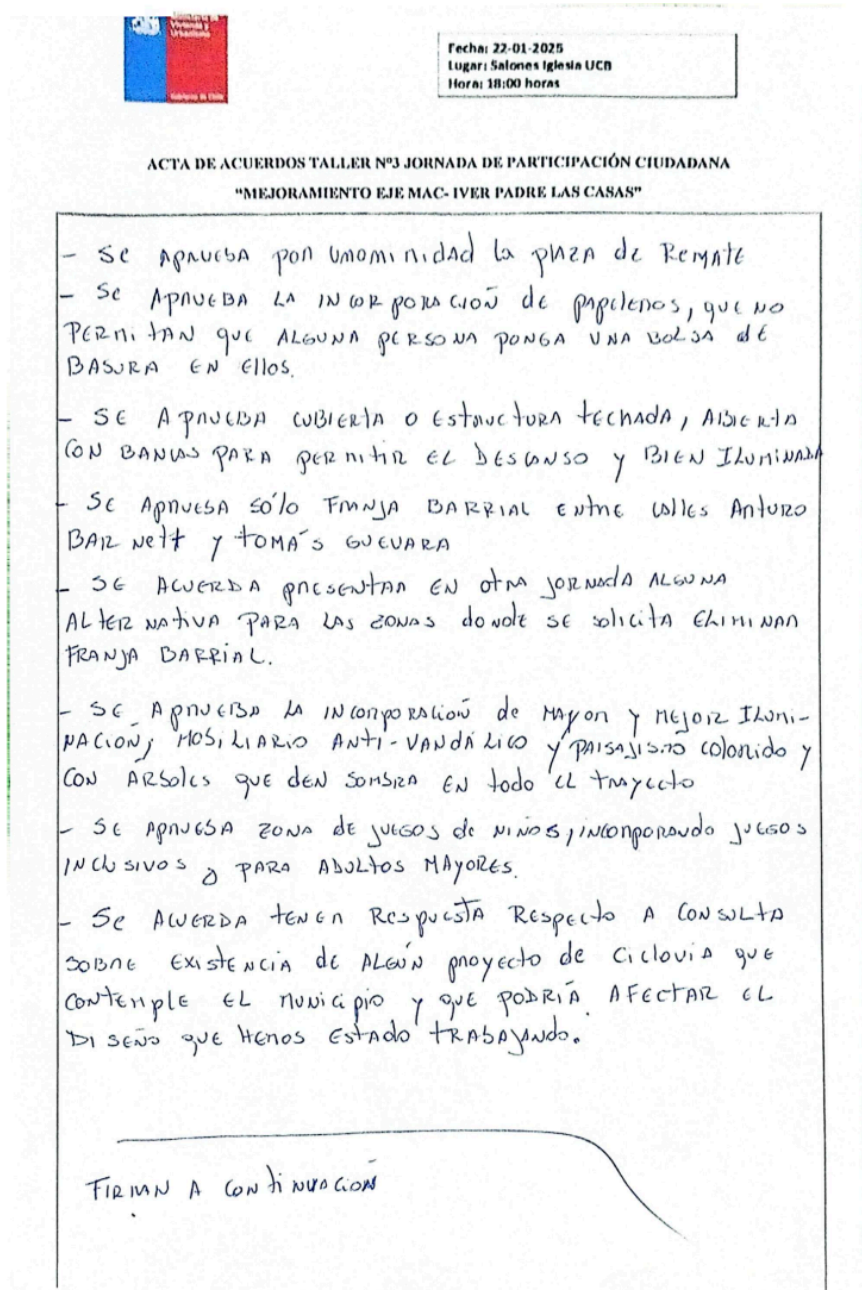 Ministerio de
Vivienda y
Urbanismo
Gobierno de Chile
Fecha: 22-01-2025
Lugar: Salones Iglesia UCB
Hora: 18:00 horas
ACTA DE ACUERDOS TALLER Nº3 JORNADA DE PARTICIPACIÓN CIUDADANA
"MEJORAMIENTO EJE MAC- IVER PADRE LAS CASAS"
- SE APRUEBA por UNOMINIDAD la PLAZA de REMATE
- SE APRUEBA LA INCORPORACIÓN de papeleros, que NO
PERMITAN QUE ALGUNA PERSONA PONGA UNA BOLSA dE
BASURA EN Ellos.
- SE APRUEBA CUBIERTA O Estructura techADA, ABIERTA
CON BANCAS PARA PERMITIR EL DESCANSO y BIEN ILUMINADA
- SE APRUEBA sólo FRANJA BARRIAL entre calles Anturo
BARNett y TOMÁS GUEVARA
- SE ACUERDA presentar EN otra JORNADA ALGUNA
ALTERNATIVA PARA LAS ZONAS donde SE solicita ELIMINAR
FRANJA BARRIAL.
- SE APRUEBA LA INCORPORACIÓN de MAYOR y MEJOR ILUMI-
NACIÓN, MOBILIARIO ANTI-VANDÁLICO y PAISAJISMO colorido y
CON ARBOLES que dEN SOMBRA EN todo EL trayecto
- SE APRUEBA ZONA de JUEGOS de NIÑOS, INCORPORANDO JUEGOS
INCLUSIVOS y PARA ADULTOS MAYORES.
- SE ACUERDA tener RespuestA RESPECTO A CONSULTA
SOBRE EXIStENCIA de ALGÚN proyecto de CicloviA que
CONTEMPLE EL MUNICIPIO y que PODRÍA AFECTAR EL
DISEÑO que HEMOS EStADO TRABAJANDO.
FIRMAN A CONTINUACIÓN